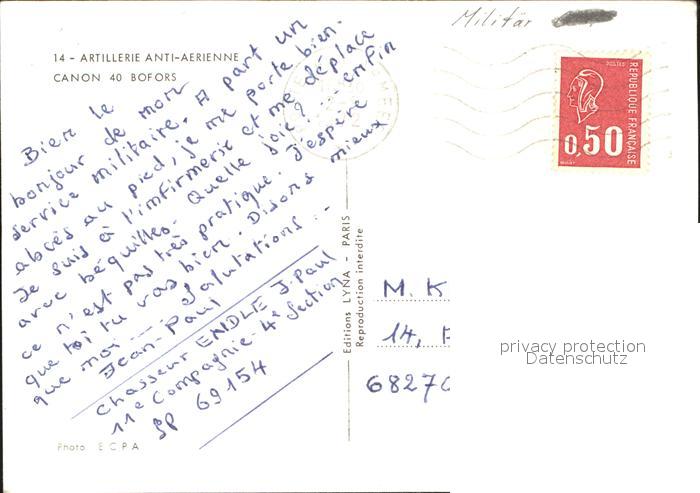 Militär
14 - ARTILLERIE ANTI-AERIENNE
CANON 40 BOFORS
Bien le
bonjour de mon
service militaire. A part un
abcés au pied, je me porte bien.
Je suis à l'infirmerie et me déplace
avec béquilles. Quelle joie ? ... enfin
ce n'est pas très pratique. J'espère
que toi tu vas bien. Disons mieux
que moi .... Salutations :-
Jean-Paul
Chasseur ENDLE J.Paul
11e Compagnie 4e Section
SP 69154
Photo E C P A
Editions LYNA - PARIS
Reproduction interdite
POSTES
REPUBLIQUE FRANÇAISE
0,50
M. K
14,
6827
privacy protection
Datenschutz